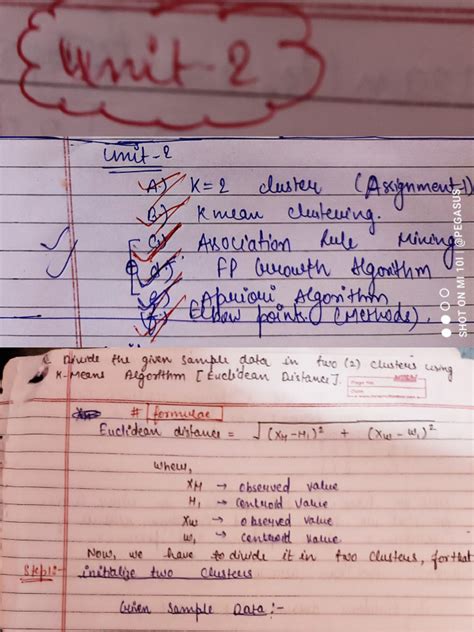 Unit-2
Unit-2
A) K=2 cluster (Assignment-1)
B) K mean clustering.
c) Association Rule Mining
d) FP Growth Algorithm
e) Apriori Algorithm
f) Elbow point (Methode).
SHOT ON MI 10I | @PEGASUS
Q Divide the given sample data in two (2) clusters using
K-Means Algorithm [Euclidean Distance].
Page No.
Date
# formulae
Euclidean distance = √(XH-H₁)² + (XW-W₁)²
where,
XH → observed value
H₁ → centroid value
XW → observed value
W₁ → centroid value
Now, we have to divide it in two clusters, for that
Step1:- initialize two clusters
Given Sample Data:-